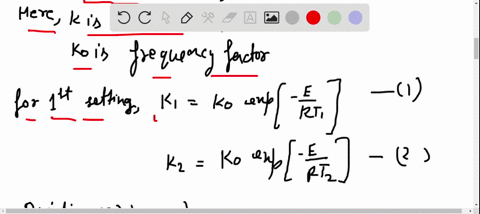 Here, K is
K0 is frequency factor
for 1st setting, K1 = K0 exp[-E/RT1] —(1)
K2 = K0 exp[-E/RT2] —(2)